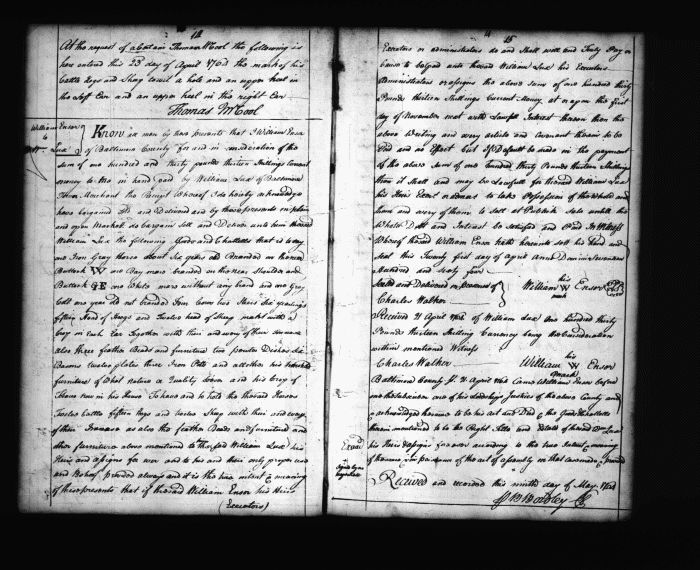 14
At the request of a Certain Thomas McCool the following is
here entered this 23 day of April 1764 the mark of his
Cattle Hogs and Sheep towit a hole and an upper heel in
the Left Ear and an upper heel in the right Ear
Thomas McCool
William Ensor
to
Lux
Know all men by these presents that I William Ensor
of Baltimore County for and in consideration of the
sum of one hundred and thirty pounds thirteen Shillings Current
money to me in hand paid by William Lux of Baltimore
Town Merchant the Receipt Whereof I do hereby acknowledge
have bargained Sold and Delivered and by these presents in plain
and open Market do bargain Sell and Deliver unto him the said
William Lux the following Goods and Chattells that is to say
one Iron Gray Horse about Six years old Branded on the near
Buttock W one Bay mare branded on the near Shoulder and
Buttock one White mare without any brand and one Gray
Colt one year old not branded four Cows two Steers Six yearlings
fifteen Head of Hogs and Twelve head of Sheep markt with a
Crop in each Ear Together with their and every of their increase
also three feather Beds and furniture two pewter Dishes Six
Basons twelve plates three Iron Pots and all other his houshold
furniture of What nature or Quality soever and his Crop of
Tobacco now in his House To have and to hold the the said Horses
Twelve Cattle fifteen Hogs and twelve Sheep with their and every
of their Increase as also the feather Beds and furniture and
other furniture above mentioned to the said William Lux his
Heirs and assigns for ever and to his and their only proper use
and Behoof provided always and it is the true intent & meaning
of these presents that if the said William Ensor his Heirs
(Executors)
15
Executors or administrators do and Shall well and Truly Pay or
Cause to be paid unto the said William Lux his Executors
administrators or assigns the above sum of one hundred thirty
Pounds thirteen Shillings Current Money at or upon the first
day of November next with Lawfull Interest thereon then this
above Writing and every article and covenant therein to be
Void and no Effect but if Default be made in the payment
of the above Sum of one hundred thirty Pounds thirteen Shillings
then it Shall and may be Lawfull for the said William Lux
his Heirs Execut. or admrs. to take Possession of the whole and
Same and every of them to sell at Publick Sale untill the
Whole Debt and Interest be satisfied and Paid In Witness
Whereof the said William Ensor hath hereunto sett his Hand and
Seal this Twenty first day of April anno Domini Seventeen
Hundred and sixty four
Sealed and Delivered in presence of
Charles Walker
his
William W Ensor
mark
Received 21 April 1764 of William Lux one hundred thirty
Pounds thirteen Shilling Currency being the Consideration
within mentioned Witness
Charles Walker
his
William W Ensor
mark
Baltimore County Ss. 21 April 1764 Came William Ensor before
one of his Lordships Justices of the above County and
acknowledged the same to be his act and Deed & the Goods & Chattells
therein mentioned to be the Right Title and Estate of the said Wm Lux
his Heirs & assigns for ever according to the true Intent & meaning
of the same & in pursuance of the act of assembly in that case made & provided
Exam'd
Received and recorded this ninth day of May 1764